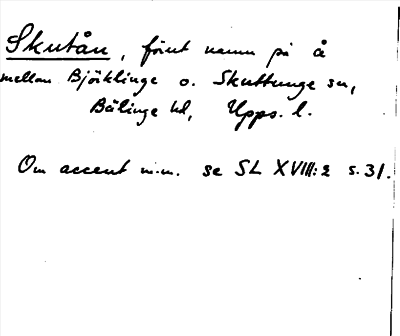 Skutån, förut namn på å
mellan Björklinge o. Skuttunge sn,
Bälinge hd, Upps. l.
Om accent m.m. se SL XVIII:2 s. 31.